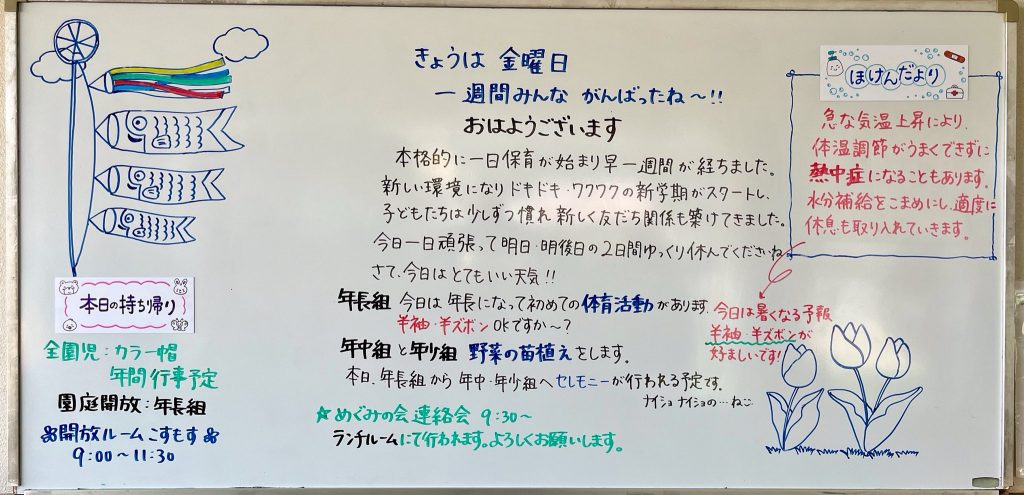 きょうは 金曜日
一週間みんな がんばったね～!!
おはようございます
本格的に一日保育が始まり早一週間が経ちました。
新しい環境になりドキドキ・ワクワクの新学期がスタートし、
子どもたちは少しずつ慣れ新しく友だち関係も築けてきました。
今日一日頑張って明日・明後日の2日間ゆっくり休んでくださいね
さて、今日はとてもいい天気!!
年長組 今日は年長になって初めての体育活動があります。
半袖・半ズボン OKですか～?
年中組と年少組 野菜の苗植えをします。
本日、年長組から年中・年少組へセレモニーが行われる予定です。
ナイショナイショの…ねこ
☆めぐみの会 連絡会 9:30～
ランチルームにて行われます。よろしくお願いします。
ほけんだより
急な気温上昇により、
体温調節がうまくできずに
熱中症になることもあります。
水分補給をこまめにし、適度に
休息も取り入れていきます。
今日は暑くなる予報
半袖・半ズボンが
好ましいです!
本日の持ち帰り
全園児:カラー帽
年間行事予定
園庭開放:年長組
開放ルームこすもす
9:00～11:30